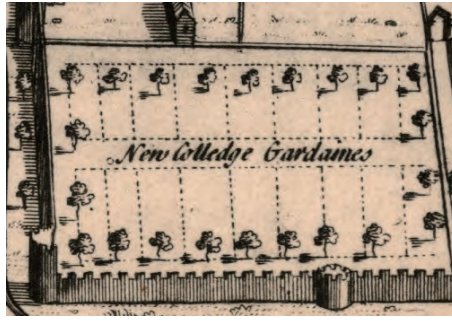 New Colledge Gardaines